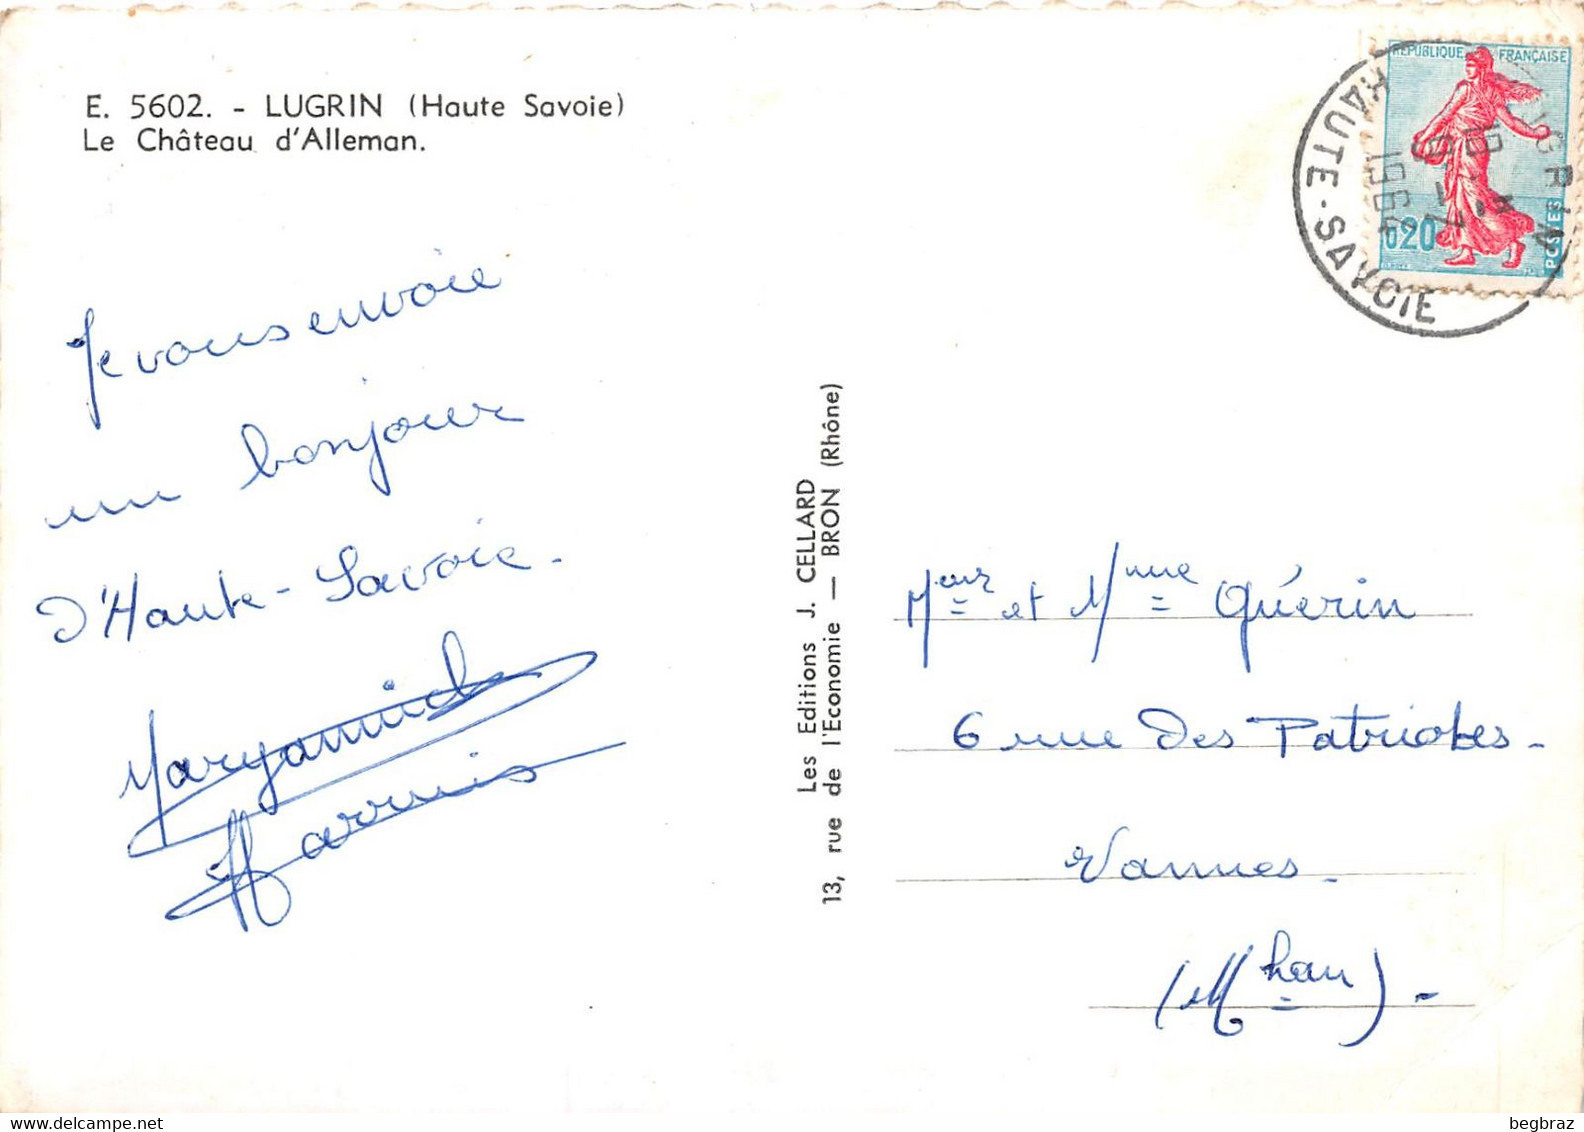 E. 5602. - LUGRIN (Haute Savoie)
Le Château d'Alleman.
Je vous envoie
un bonjour
d'Haute-Savoie.
Maryannick
Les Editions J. CELLARD
13, rue de l'Economie — BRON (Rhône)
RÉPUBLIQUE FRANÇAISE
0,20
POSTES
LUGRIN
HAUTE-SAVOIE
1964
Mr et Mme Guérin
6 rue des Patriotes-
Vannes-
(Mhan)-
begbraz